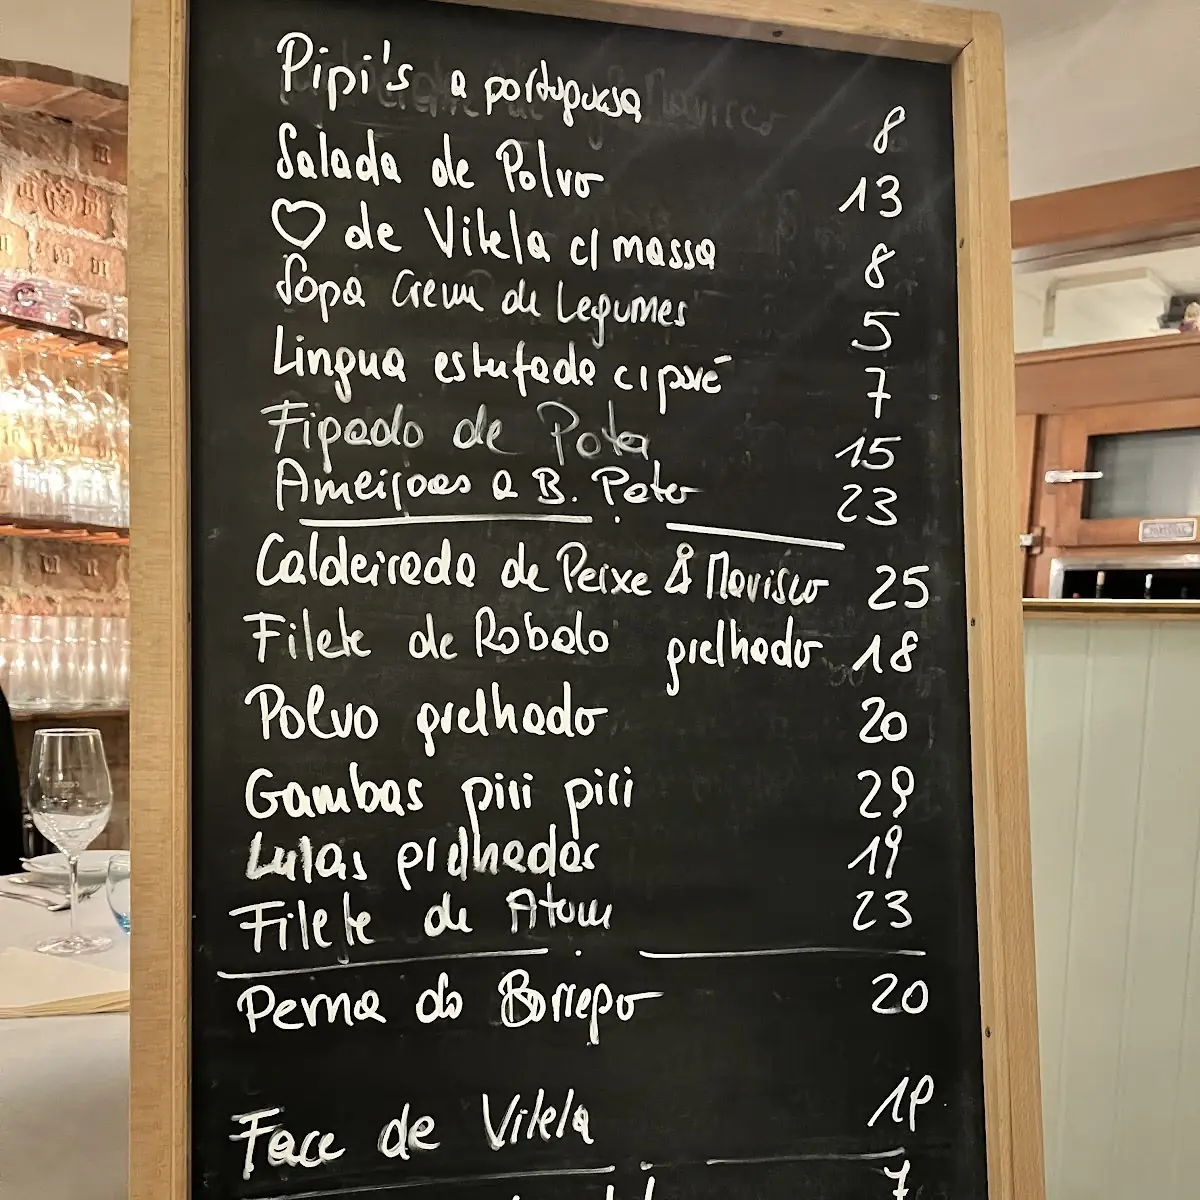 Pipi's a portuguesa 8
Salada de Polvo 13
♡ de Vitela c/ massa 8
Sopa Creme de Legumes 5
Lingua estufada c/ puré 7
Figado de Pato 15
Ameijoas a B. Pato 23
Caldeirada de Peixe & Marisco 25
Filete de Robalo grelhado 18
Polvo grelhado 20
Gambas piri piri 29
Lulas grelhadas 19
Filete de Atum 23
Perna do Borrego 20
Face de Vitela 19
7